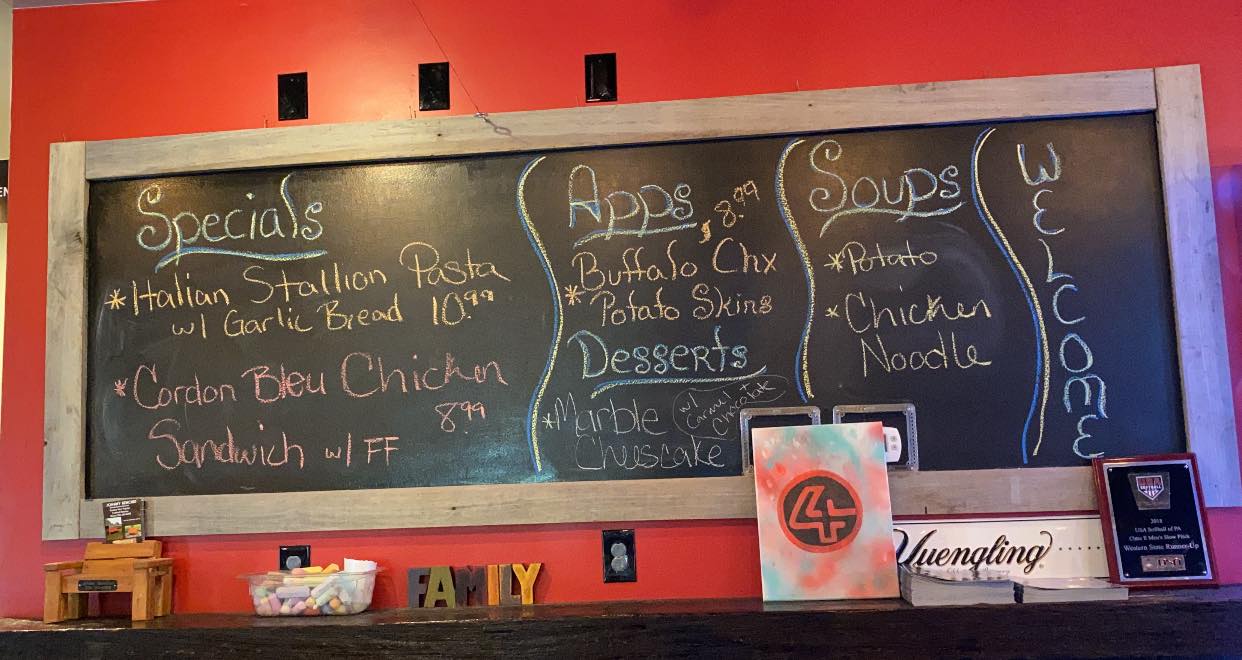 Specials
*Italian Stallion Pasta
w/ Garlic Bread 10.99
*Cordon Bleu Chicken
8.99
Sandwich w/ FF
Apps
$8.99
Buffalo Chx
* Potato Skins
Desserts
*Marble
w/
Carmel +
Chocolate
Cheescake
Soups
*Potato
*Chicken
Noodle
WELCOME
FAMILY
4
Yuengling
2018
USA Softball of PA
Class E Men's Slow Pitch
Western State Runner-Up